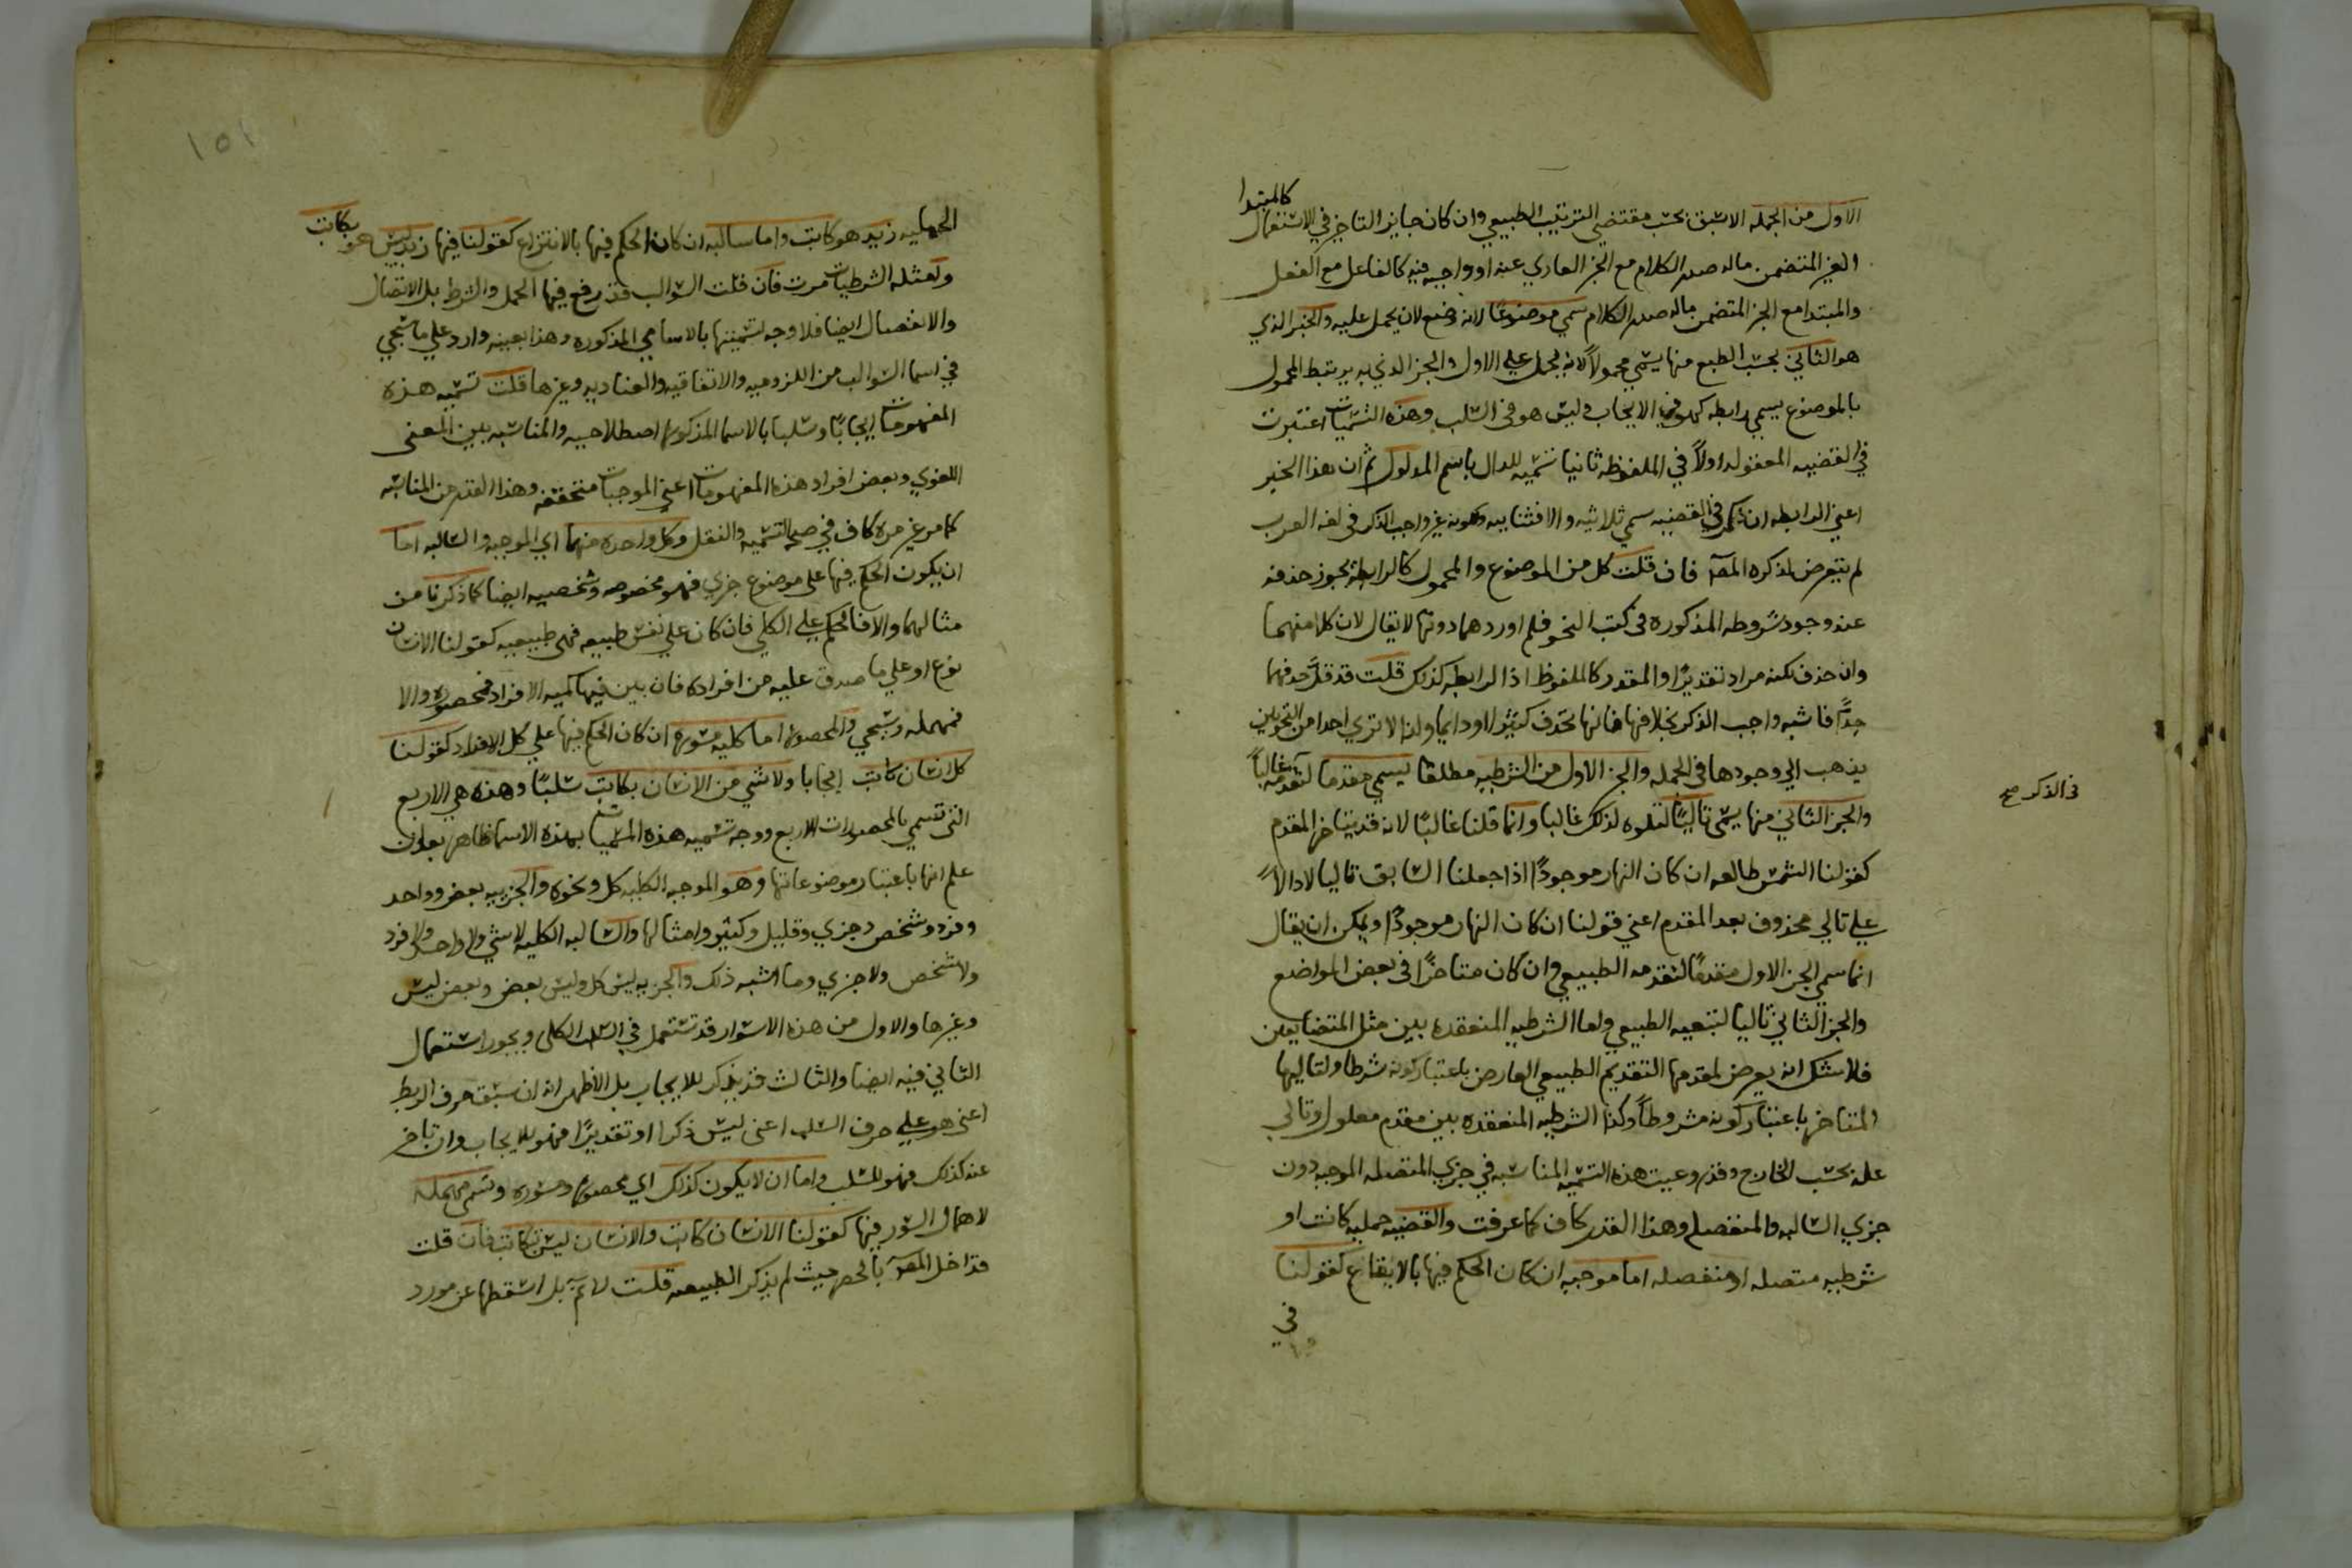 كالمبتدا
الاول من الجمله الاسبق بحسب مقتضي الترتيب الطبيعي وان كان جايز التاخر في الاستعمال
الغير المتضمن ماله صدر الكلام مع الجز العاري عنه او واجبه فيه كالفاعل مع الفعل
والمبتدا مع الجز المتضمن ماله صدر الكلام سمي موضوعًا لانه وضع لان يحمل عليه والخبر الذي
هو الثاني بحسب الطبع منها يسمي محمولاً لانه يحمل علي الاول والجز الذي به يرتبط المحمول
بالموضوع يسمي رابطه كهو في الايجاب وليس هو في السلب وهذه التسميات اعتبرت
في القضيه المعقوله اولاً في الملفوظه ثانيا تسميه للدال باسم المدلول ثم ان هذا الخبر
اعني الرابطه ان ذكر في القضيه سمي ثلاثيه والا فثناييه ولكونه غير واجب الذكر في لغه العرب
لم يتعرض لذكره المص فان قلت كل من الموضوع والمحمول كالرابطه يجوز حذفه
عند وجود شروطه المذكوره في كتب النحو فلم اوردهما دونها لا يقال لان كلا منهما
وان حذف لكنه مراد تقديرًا والمقدر كالملفوظ اذ الرابطه كذلك قلت قد قل حذفهما
جدًّا فاشبه واجب الذكر بخلافها فانها تحذف كثيرا او دايما ولذا لا تري احدا من النحويين
يذهب الي وجودها في الجمله والجز الاول من الشرطيه مطلقا يسمي مقدما لتقدمه غالباً
في الذكر صح
والجز الثاني منها يسمي تاليًا لتلوه لذلك غالبا وانما قلنا غالبًا لانه قد يتاخر المقدم
كقولنا الشمس طالعه ان كان النهار موجودًا اذا جعلنا السابق تاليا لا دالاً
علي تالي محذوف بعد المقدم اعني قولنا ان كان النهار موجودًا ويمكن ان يقال
انما سمي الجز الاول مقدمًا لتقدمه الطبيعي وان كان متاخرًا في بعض المواضع
والجز الثاني تاليا لتبعيه الطبيعي واما الشرطيه المنعقده بين مثل المتضايفين
فلا شك انه يعرض لمقدمها التقديم الطبيعي العارض باعتبار كونه شرطا ولتاليها
المتاخر باعتبار كونه مشروطاً وكذا الشرطيه المنعقده بين مقدم معلول وتالي
علة بحسب الخارج وقد روعيت هذه التسميه المناسبه في جزي المتصله الموجبه دون
جزي السالبه والمنفصله وهذا القدر كاف كما عرفت والقضيه حمليه كانت او
شرطيه متصله او منفصله اما موجبه ان كان الحكم فيها بالايقاع كقولنا
في
الحمليه زيد هو كاتب واما سالبه ان كان الحكم فيها بالانتزاع كقولنا فيها زيد ليس هو بكاتب
وامثله الشرطيات مرت فان قلت السوالب قد رفع فيها الحمل والشرط بل الاتصال
والانفصال ايضا فلا وجه لتسميتها بالاسامي المذكوره وهذا بعينه وارد علي ما سيجي
في اسما السوالب من اللزوميه والاتفاقيه والعناديه وغيرها قلت تسميه هذه
المفهومات ايجابًا وسلبا بالاسما المذكوره اصطلاحيه والمناسبه بين المعني
اللغوي وبعض افراد هذه المفهومات اعني الموجبات متحققه وهذا القدر من المناسبه
كما مر غير مرة كاف في صحه التسميه والنقل وكل واحده منهما اي الموجبه والسالبه اما
ان يكون الحكم فيها علي موضوع جزي فهو مخصوصه وشخصيه ايضا كما ذكرنا من
مثالهما والا فالحكم علي الكلي فان كان علي نفس طبيعه فهي طبيعيه كقولنا الانسان
نوع او علي ما صدق عليه من افراده فان بين فيها كميه الافراد فمحصوره والا
فمهمله وسيجي والمحصوره اما كليه مسوره ان كان الحكم فيها علي كل الافراد كقولنا
كل انسان كاتب ايجابا ولا شي من الانسان بكاتب سلبًا وهذه هي الاربع
التي تسمي بالمحصورات الاربع ووجه تسميه هذه المسميات بهذه الاسما ظاهر بعد ان
علم انها باعتبار موضوعاتها وهو الموجبه الكليه كل ونحوه والجزييه بعض وواحد
وفرد وشخص وجزي وقليل وكثير وامثالها والسالبه الكليه لا شي ولا واحد ولا فرد
ولا شخص ولا جزي وما اشبه ذلك والجزييه ليس كل وليس بعض وبعض ليس
وغيرها والاول من هذه الاسوار قد تستعمل في السلب الكلي ويجوز استعمال
الثاني فيه ايضا والثالث قد يذكر للايجاب بل الاظهر انه ان سبق حرف الربط
اعني هو علي حرف السلب اعني ليس ذكرا او تقديرًا فهو للايجاب وان تاخر
عنه كذلك فهو للسلب واما ان لا يكون كذلك اي محصوره ومسوره وتسمي مهمله
لاهمال السور فيها كقولنا الانسان كاتب والانسان ليس بكاتب فان قلت
قد اخل المص بالحصر حيث لم يذكر الطبيعيه قلت لا ثم بل اسقطها عن مورد